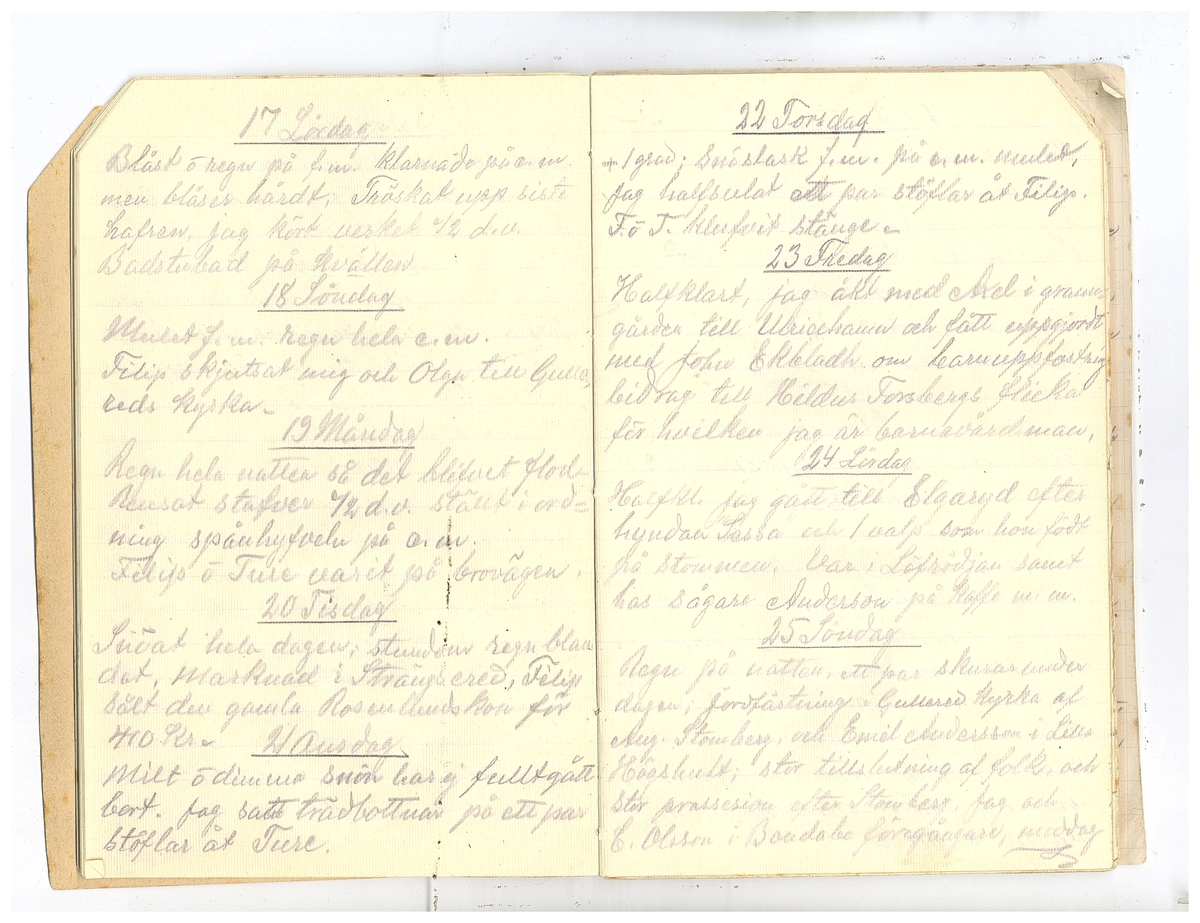 17 Lördag
Blåst ö regn på f.m. klarnade på e.m.
men blåser hårdt; Tröskat upp siste
hafren, jag kört verket 1/2 d.v.
Badstubad på kvällen
18 Söndag
Mulet f.m. regn hela e.m.
Filip skjutsat mig och Olga till Gulle,
reds kyrka.
19 Måndag
Regn hela natten så det blifvit flod.
Rensat stafver 1/2 d.v. stält i ord=
ning spånhyfveln på e.m.
Filip ö Ture varit på brovägen.
20 Tisdag
Snöat hela dagen; stundom regn blan
dat, marknad i Strängsered, Filip
sält den gamla Rosenlundskon för
410 Kr.
21 Onsdag
Milt ö dimma snön har ej fullt gått
bort. Jag satt trädbottnar på ett par
stöflar åt Ture.
22 Torsdag
+1 grad; Snöslask f.m. på e.m. mulet,
Jag halfsulat ett par stöflar åt Filip.
F. ö T. klufvit stänge.
23 Fredag
Halfklart, jag åkt med Axel i grann=
gården till Ulricehamn och fått uppgjordt
med John Ekbladh om barnuppfostring
bidrag till Hildur Forsbergs flicka
för hvilken jag är barnavårdsman,
24 Lördag
Halfkl. jag gått till Elgaryd efter
hyndan Sessa och 1 valp som hon födt
på stommen. Var i Löfrödjan samt
hos sågare Anderson på kaffe m.m.
25 Söndag
Regn på natten, ett par skurar under
dagen; jordfästning i Gullered kyrka af
Aug. Stomberg, och Emil Andersson i Lilla
Högshult; stor tillslutning af folk, och
stor prossesion efter Stomberg. Jag och
C. Olsson i Bondabo föregångare, middag